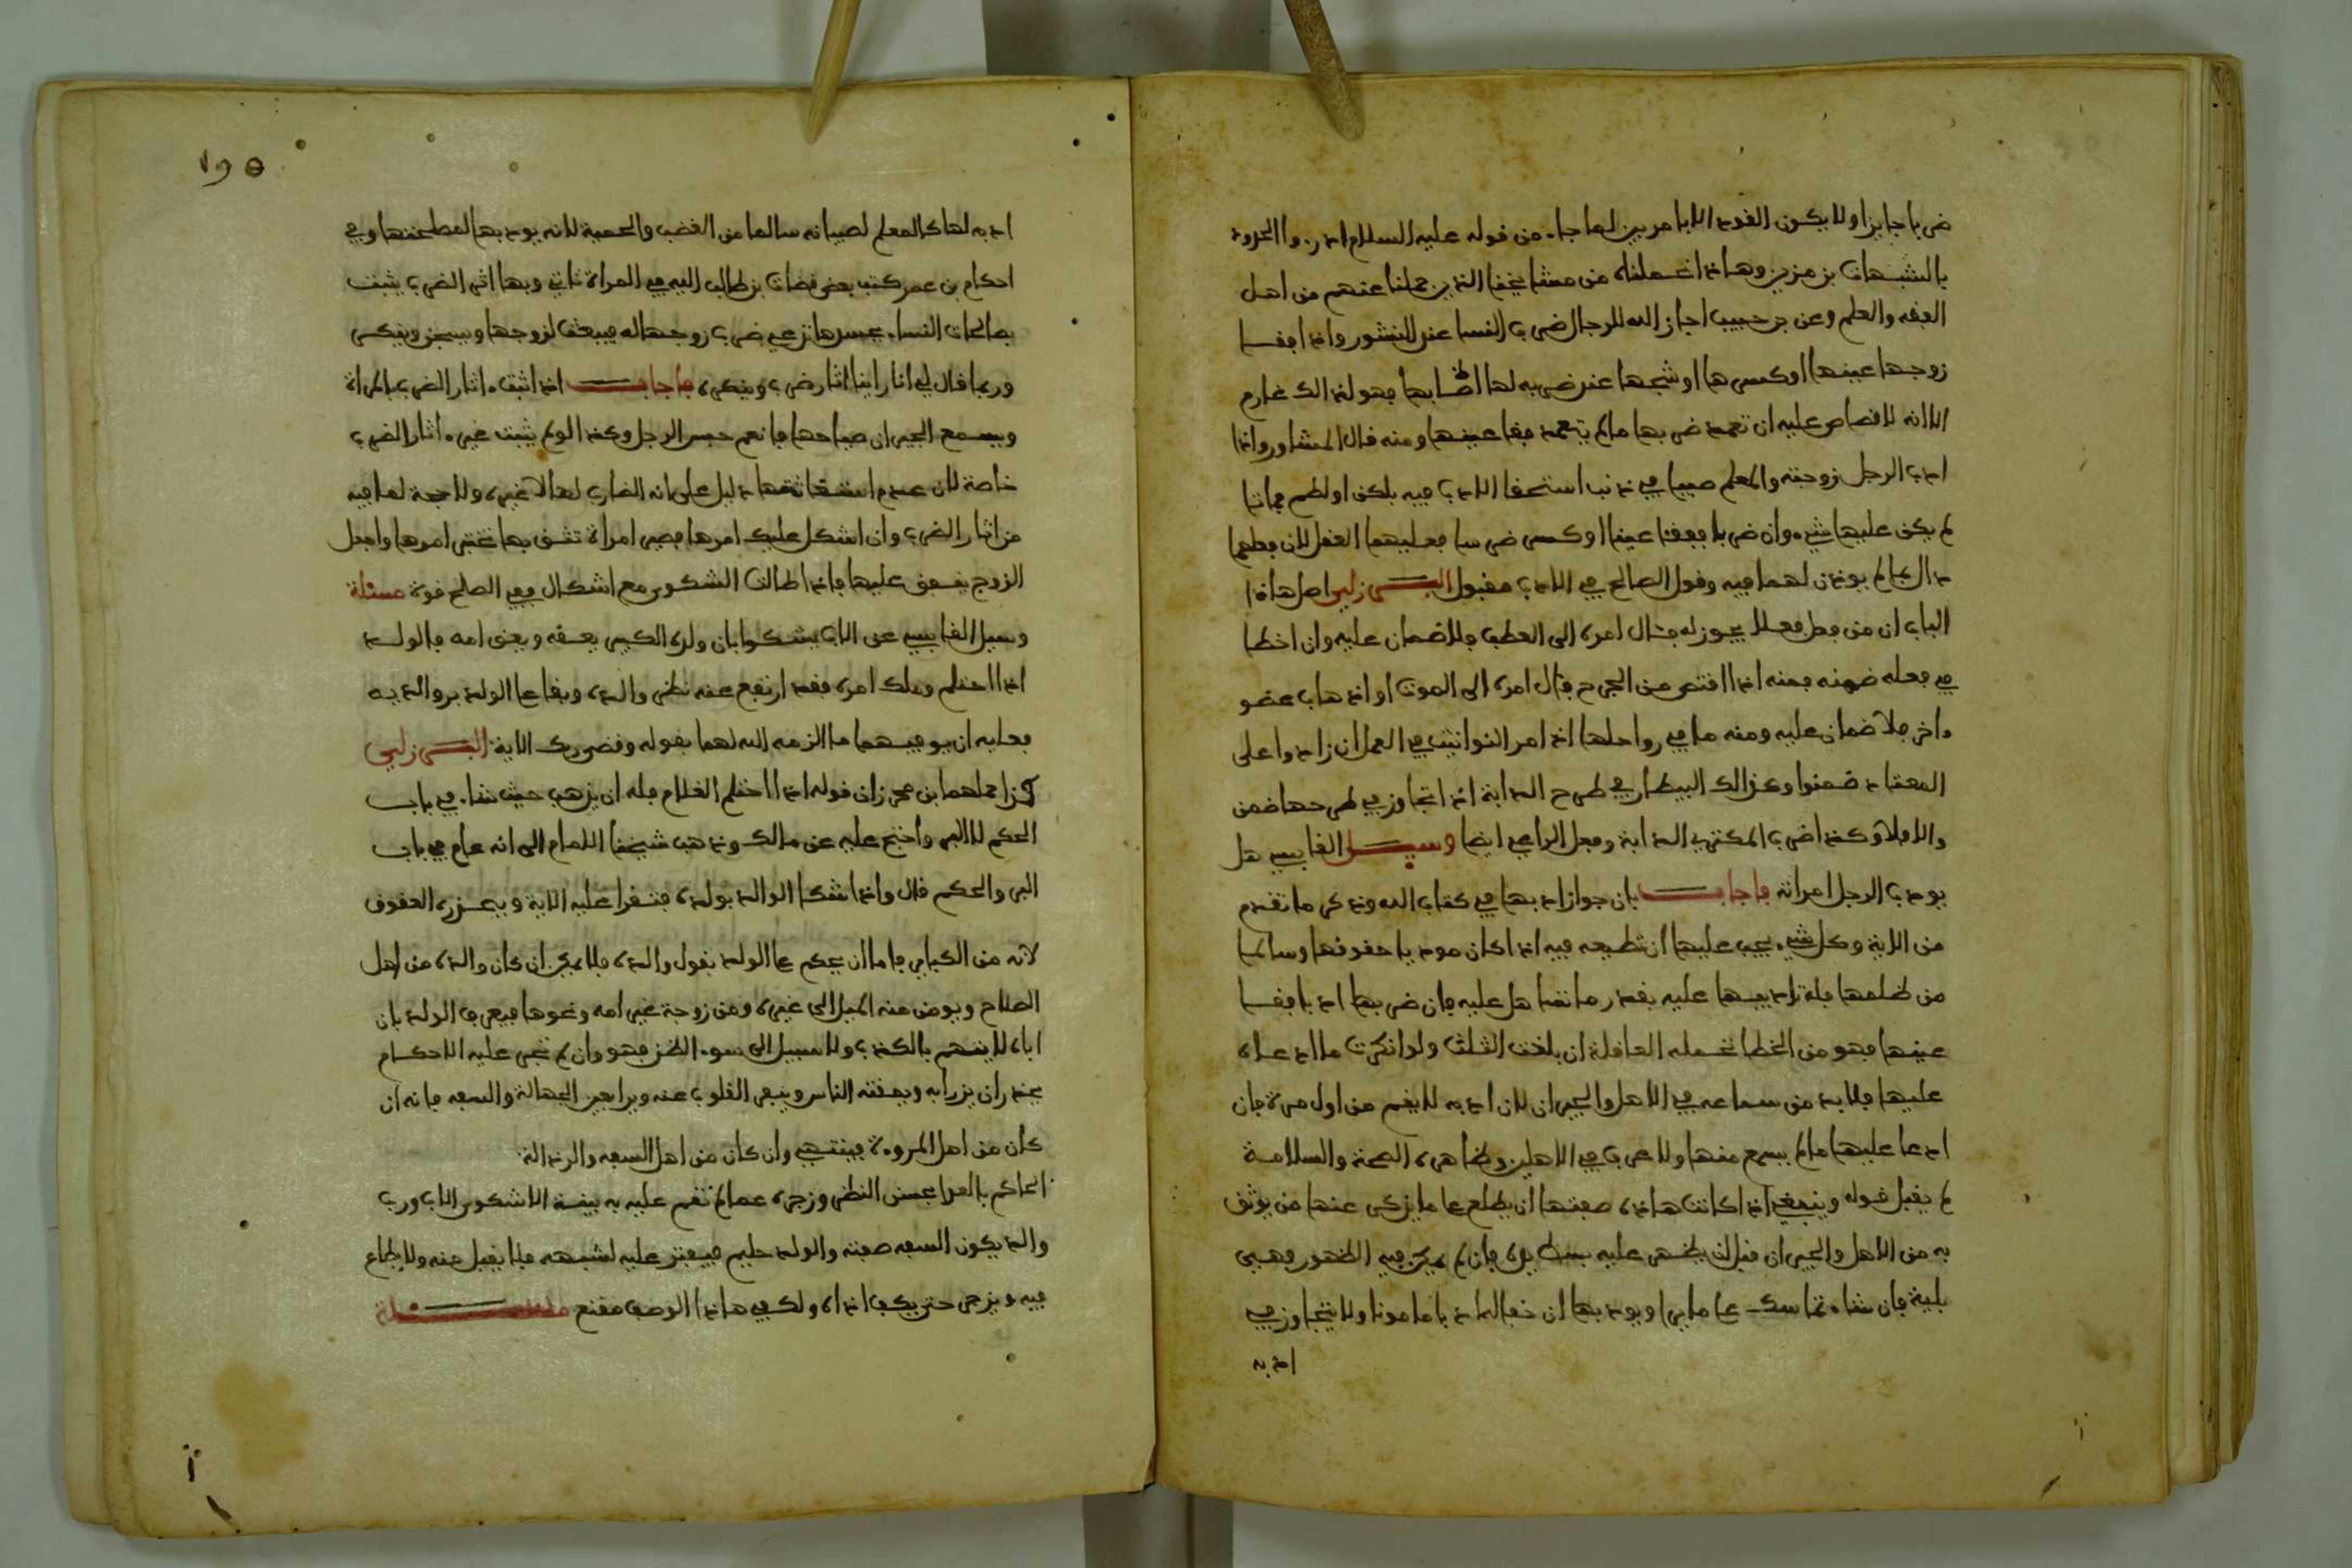 ضربا جايزا ولا يكون القود الا بامر بين لما جاء من قوله عليه السلام ادرءوا الحدود
بالشبهات بن مزين وهاذا تحملناه من مشايخنا الذين حملنا عنهم من اهل
الفقه والعلم وعن بن حبيب اجاز الله للرجال ضرب النسا عند النشوز واذا فقا
زوجها عينها او كسرها او شجها عند ضربه لها اصابها فهو لذالك غارم
الا انه لا قصاص عليه ان تعمد ضربها ما لم يتعمد فقا عينها ومنه قال المشاور واذا
ادب الرجل زوجته والمعلم صبيا في ذنب استحقا الادب فيه بلكز او لطم فماتا
لم يكن عليهما شيء وان ضربا ففقئا عينا او كسرا ضرسا فعليهما العقل لان فعلهما
ذالك مما لم يوذن لهما فيه وقول الصالح في الادب مقبول البرزلي اصل هاذا
الباب ان من فعل فعلا يجوز له فئال امره الى العطب فلا ضمان عليه وان اخطا
في فعله ضمنه فمنه اذا اقتص من الجرح فئال امره الى الموت او اذهاب عضو
ءاخر فلا ضمان عليه ومنه ما في رواحلها اذا امر النواتية في العمل ان زادوا على
المعتاد ضمنوا وكذالك البيطار في طرح الدابة اذا تجاوز في طرحها ضمن
والا فلا وكذا ضرب المكتري الدابة وفعل الراعي ايضا وسيل القابسي هل
يودب الرجل امراته فاجاب بان جواز ادبها في كتاب الله وذكر ما تقدم
من الاية وكل شيء يجب عليها ان تطيعه فيه اذا كان موديا حقوقها وسالما
من ظلمها فله تاديبها عليه بقدر ما تضاهل عليه فان ضربها ادبا ففقا
عينها فهو من الخطا تحمله العاقلة ان بلغت الثلث ولو انكرت ما ادعاه
عليها فلا بد من سماعه في الاهل والجيران لان ادبه لا يقع من اول مرة فان
ادعا عليها ما لم يسمع منها ولا عرف في الاهلين وظاهره الصحة والسلامة
لم يقبل قوله وينبغي اذا كانت هاذه صفتها ان يطلع على ما يذكر عنها من يوثق
به من الاهل والجيران قبل ان يظهر عليه بسط يده فان لم يمكن فيه الظهور فهي
بلية فان شاء تماسك على ما يرا ويودبها ان خف الماد با مامونا ولا يتجاوز في
ادبه
١٩٥
ادبه لها كالمعلم لصبيانه سالما من الغضب والحمية لانه يودبها لمصلحتها وفي
احكام بن عمر كتب بعض قضات بن طالب اليه في المراة تاتي وبها اثر الضرب يثبت
بصالحات النسا عسرها تزعم ضرب زوجها له فيبعث لزوجها ويسجن وينكر
وربما قال لي انا راينا اثار ضرب وينكره فاجاب اذا اثبت اثار الضرب بالمراة
ويسمع الجيران صياحها فانعم حبس الرجل وكذا لو لم يثبت غير اثار الضرب
خاصة لان عدم استغاثتها دليل على انه الضارب لها لا غيره ولا حجة لها فيه
من اثار الضرب وان اشكل عليك امرها فصير امراة تثق بها تختبر امرها واجعل
الزوج ينفق عليها فاذا طالت الشكوى مع اشكال ففي الصلح قوة مسئلة
وسيل القابسي عن الاب يشكوا بان ولده الكبير يعقه ويعني امه فالولد
اذا احتلم وملك امره فقد ارتفع عنه نظر والده وبقا على الولد بر والديه
فعليه ان يوفيهما ما الزمه الله لهما بقوله وقضى ربك الاية البرزلي
كذا حملهما بن محرز ان قوله اذا احتلم الغلام فله ان يذهب حيث شاء في باب
الحكم لا البر واحتج عليه عن مالك وذهب شيخنا الامام الى انه عام في باب
البر والحكم قال واذا شكا الوالد بولده فتقرا عليه الاية ويحذره العقوق
لانه من الكباير فاما ان يحكم على الولد بقول والده فلا يمكن ان كان والده من اهل
الصلاح ويومن منه الميل الى غيره ومن زوجة غير امه ونحوها فيعرف الولد بان
اباه لا يتهم بالكذب ولا سبيل الى سوء الظن فهو وان لم تجر عليه الاحكام
يحذر ان يزرا به ويمقته الناس وينبغي القلوب عنه ويرا بعين الجهالة والسفه فانه ان
كان من اهل المروءة فينتهي وان كان من اهل السفه والرذالة
الحاكم بالعدا بحسن النظر وزجره عما لم تقم عليه به بينة الا شكوى الاب ورب
والد يكون السفه صفته والولد حليم فيفتر عليه لشبهه فلا يقبل منه ولا يطاع
فيه ويزجر حتى يكف اذاه ولكفي هاذا الوصف مقنع مسئلة